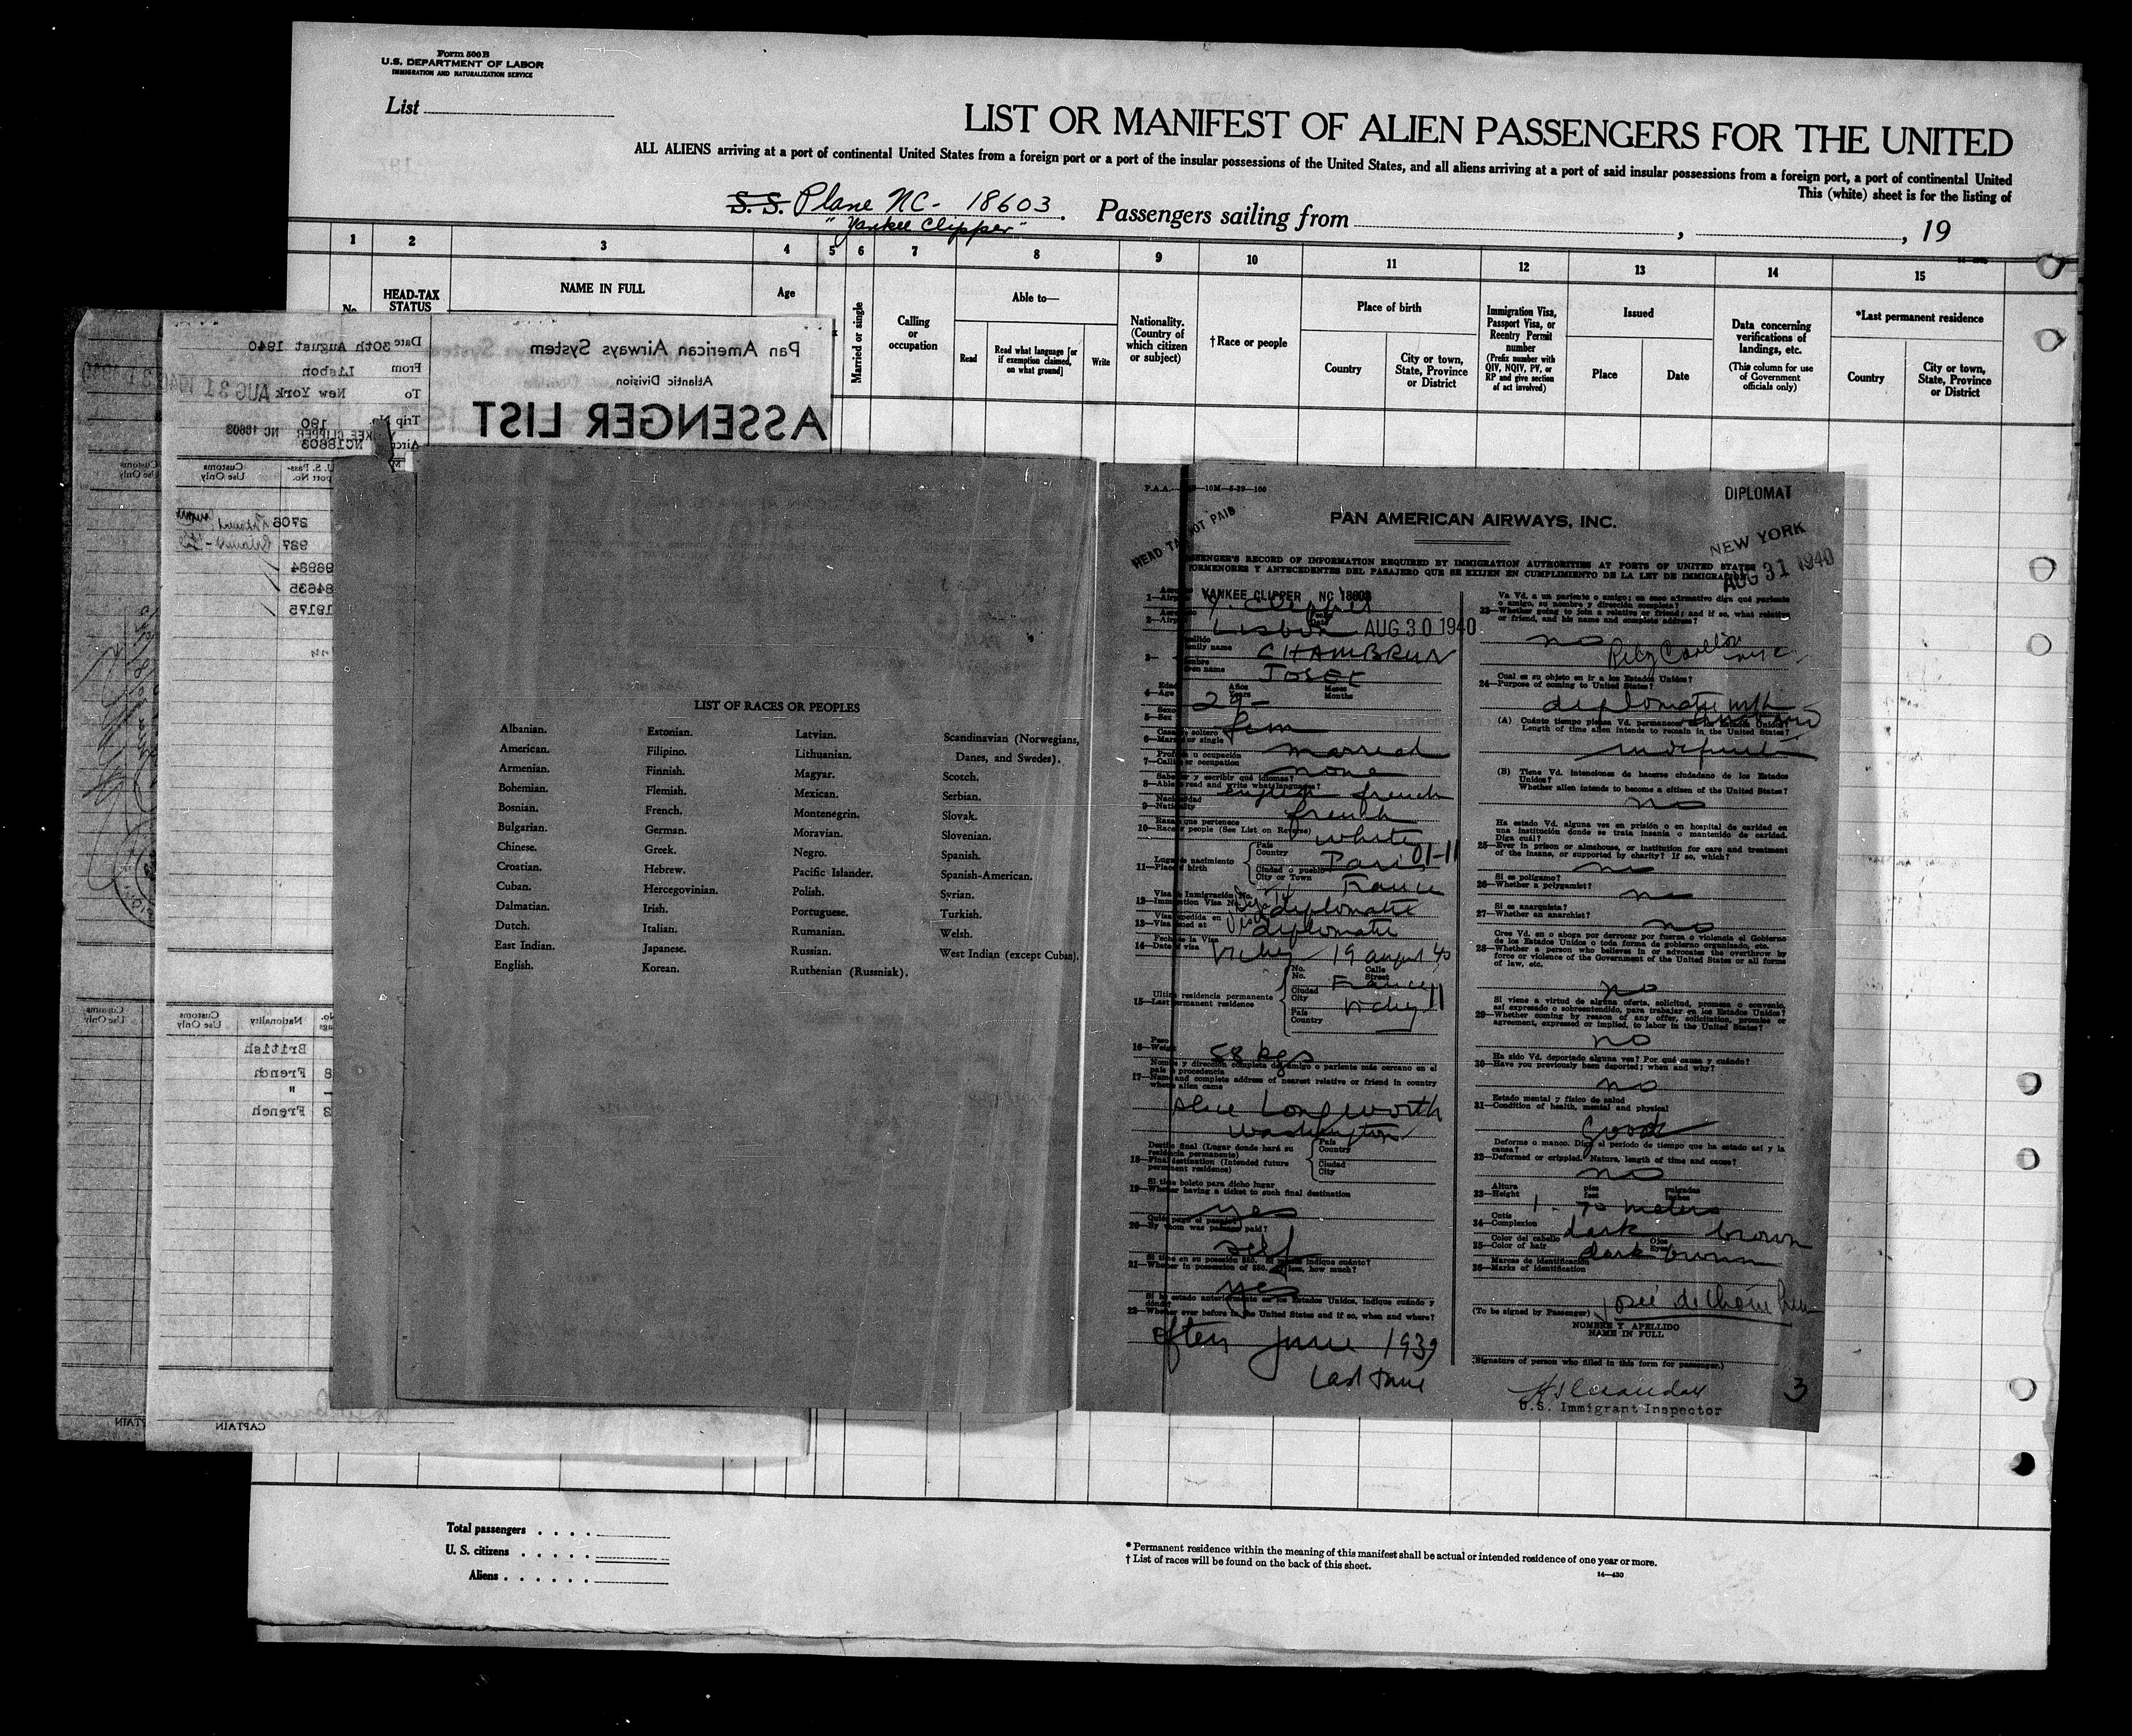 Form 500 B
U.S. DEPARTMENT OF LABOR
IMMIGRATION AND NATURALIZATION SERVICE
List
LIST OR MANIFEST OF ALIEN PASSENGERS FOR THE UNITED
ALL ALIENS arriving at a port of continental United States from a foreign port or a port of the insular possessions of the United States, and all aliens arriving at a port of said insular possessions from a foreign port, a port of continental United
This (white) sheet is for the listing of
S. S. Plane NC- 18603. Passengers sailing from , , 19
"Yankee Clipper"
1 2 3 4 5 6 7 8 9 10 11 12 13 14 15
No.
HEAD-TAX STATUS
NAME IN FULL
Age
Married or single
Calling or occupation
Able to—
Read
Read what language [or if exemption claimed, on what ground]
Write
Nationality. (Country of which citizen or subject)
†Race or people
Place of birth
Country
City or town, State, Province or District
Immigration Visa, Passport Visa, or Reentry Permit number
(Prefix number with QIV, NQIV, PV, or RP and give section of act involved)
Issued
Place
Date
Data concerning verifications of landings, etc.
(This column for use of Government officials only)
*Last permanent residence
Country
City or town, State, Province or District
Pan American Airways System
Atlantic Division
ASSENGER LIST
Date 30th August 1940
From Lisbon
To New York AUG 31 1940
Trip No. 190
YANKEE CLIPPER NC 18603
Aircr NC18603
U.S. Pass-port No.
Customs Use Only
2706
927
98984
84635
19175
Nationality
Customs Use Only
British
French
"
French
CAPTAIN
LIST OF RACES OR PEOPLES
Albanian.
American.
Armenian.
Bohemian.
Bosnian.
Bulgarian.
Chinese.
Croatian.
Cuban.
Dalmatian.
Dutch.
East Indian.
English.
Estonian.
Filipino.
Finnish.
Flemish.
French.
German.
Greek.
Hebrew.
Hercegovinian.
Irish.
Italian.
Japanese.
Korean.
Latvian.
Lithuanian.
Magyar.
Mexican.
Montenegrin.
Moravian.
Negro.
Pacific Islander.
Polish.
Portuguese.
Rumanian.
Russian.
Ruthenian (Russniak).
Scandinavian (Norwegians,
Danes, and Swedes).
Scotch.
Serbian.
Slovak.
Slovenian.
Spanish.
Spanish-American.
Syrian.
Turkish.
Welsh.
West Indian (except Cuban).
P.A.A. 10M—6-39—100
DIPLOMAT
HEAD TAX NOT PAID
PAN AMERICAN AIRWAYS, INC.
NEW YORK
AUG 31 1940
SSENGER'S RECORD OF INFORMATION REQUIRED BY IMMIGRATION AUTHORITIES AT PORTS OF UNITED STATES
ORMENORES Y ANTECEDENTES DEL PASAJERO QUE SE EXIJEN EN CUMPLIMIENTO DE LA LEY DE IMMIGRACION
YANKEE CLIPPER NC 18603
Y. Clipper
Lisbon AUG 30 1940
family name CHAMBRUN
name JOSEE
4—Age Años Years Meses Months
29-
5—Sex fem
6—Married or single married
7—Calling or occupation none
8—Able to read and write what languages?
english french
9—Nationality french
10—Race or people (See List on Reverse) white
11—Place of birth
País Country Paris 01-11
Ciudad o pueblo City or Town France
12—Immigration Visa No. diplomatic
13—Visa issued at diplomatic
14—Date of visa Vichy 19 august 40
No. Calle Street
France
Ultima residencia permanente
15—Last permanent residence
Ciudad City Vichy 11
País Country
16—Weight 58 kgs
17—Name and complete address of nearest relative or friend in country whence alien came
Alice Longworth
Washington
Destino final (Lugar donde hará su residencia permanente)
18—Final destination (Intended future permanent residence)
País Country
Ciudad City
Si tiene boleto para dicho lugar
19—Whether having a ticket to such final destination
yes
20—By whom was passage paid?
self
21—Whether in possession of $50. If less, how much?
yes
22—Whether ever before in the United States and if so, when and where?
often June 1939
Last June
Va Vd. a un pariente o amigo; en caso afirmativo diga qué pariente o amigo, su nombre y dirección completa?
23—Whether going to join a relative or friend; and if so, what relative or friend, and his name and complete address?
no
Ritz Carlton
Cual es su objeto en ir a los Estados Unidos?
24—Purpose of coming to United States?
diplomatic with
husband
(A) Cuánto tiempo piensa Vd. permanecer en los Estados Unidos?
Length of time alien intends to remain in the United States?
indefinite
(B) Tiene Vd. intenciones de hacerse ciudadano de los Estados Unidos?
Whether alien intends to become a citizen of the United States?
no
Ha estado Vd. alguna vez en prisión o en hospital de caridad en una institución donde se trata insania o mantenido de caridad. Diga cuál?
25—Ever in prison or almshouse, or institution for care and treatment of the insane, or supported by charity? If so, which?
no
Si es polígamo?
26—Whether a polygamist?
no
Si es anarquista?
27—Whether an anarchist?
no
Cree Vd. en o aboga por derrocar por fuerza o violencia al Gobierno de los Estados Unidos o toda forma de gobierno organizado, etc.
28—Whether a person who believes in or advocates the overthrow by force or violence of the Government of the United States or all forms of law, etc.
no
Si viene a virtud de alguna oferta, solicitud, promesa o convenio, así expresado o sobreentendido, para trabajar en los Estados Unidos?
29—Whether coming by reason of any offer, solicitation, promise or agreement, expressed or implied, to labor in the United States?
no
Ha sido Vd. deportado alguna vez? Por qué causa y cuándo?
30—Have you previously been deported; when and why?
no
Estado mental y físico de salud
31—Condition of health, mental and physical
Good
Deforme o manco. Diga el período de tiempo que ha estado así y la causa?
32—Deformed or crippled. Nature, length of time and cause?
no
Altura pies pulgadas
33—Height feet inches
1-70 meters
Cutis
34—Complexion dark brown
Color del cabello Ojos
35—Color of hair dark Eyes brown
Marcas de identificación
36—Marks of identification
(To be signed by Passenger) Josée de Chambrun
NOMBRE Y APELLIDO
NAME IN FULL
(Signature of person who filled in this form for passenger.)
U.S. Immigrant Inspector
3
Total passengers
U. S. citizens
Aliens
* Permanent residence within the meaning of this manifest shall be actual or intended residence of one year or more.
† List of races will be found on the back of this sheet.
14—430